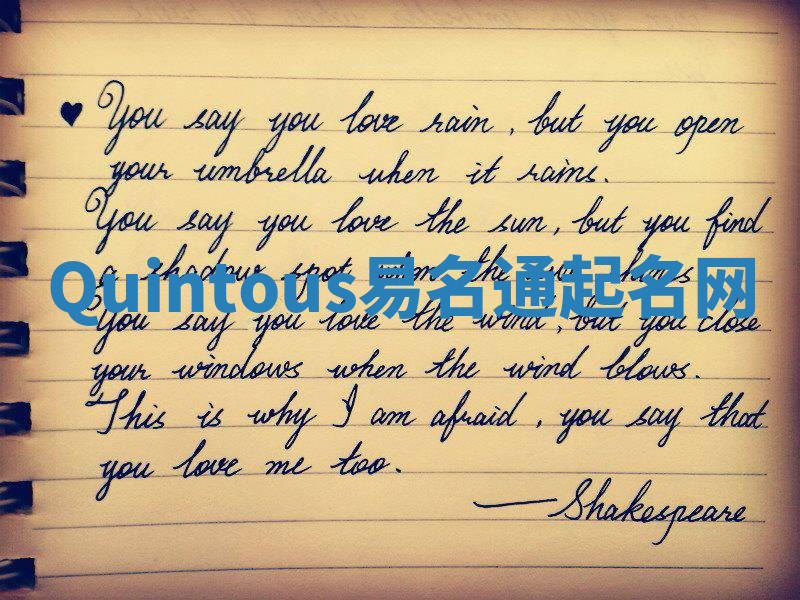 ♥ You say you love rain, but you open
your umbrella when it rains.
You say you love the sun, but you find
a shadow spot when the sun shines
Quintous易名通起名网
You say you love the wind, but you close
your windows when the wind blows.
This is why I am afraid, you say that
you love me too.
—Shakespeare